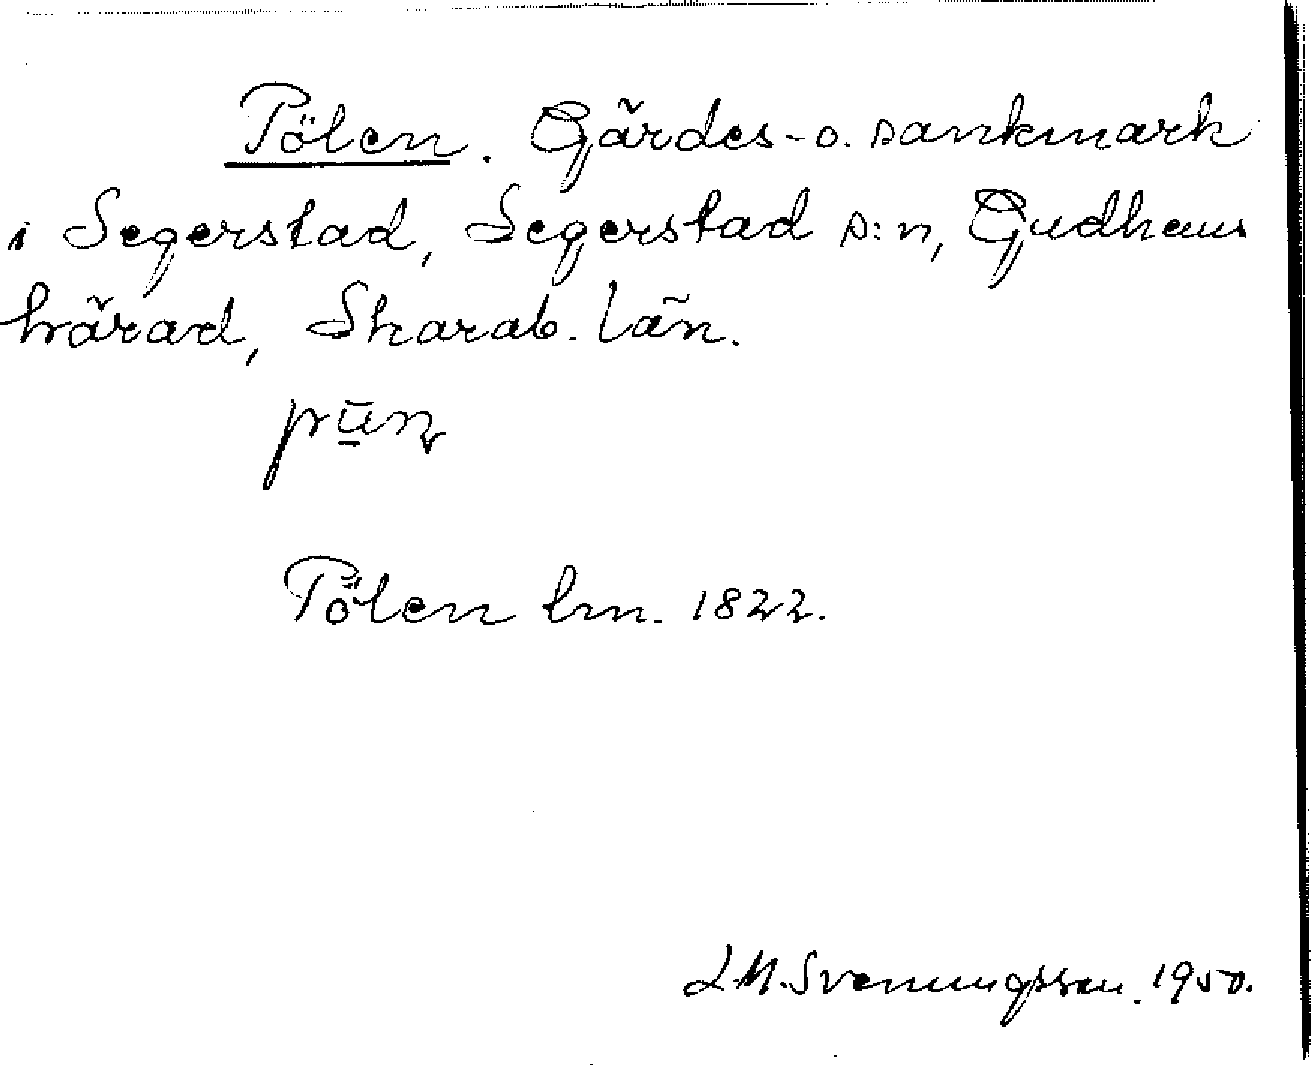 Pölen. Gärdes- o. sankmark
i Segerstad, Segerstad s:n, Gudhems
härad, Skarab. län.
Pölen lm. 1822.
L.M. Svenungsson. 1950.